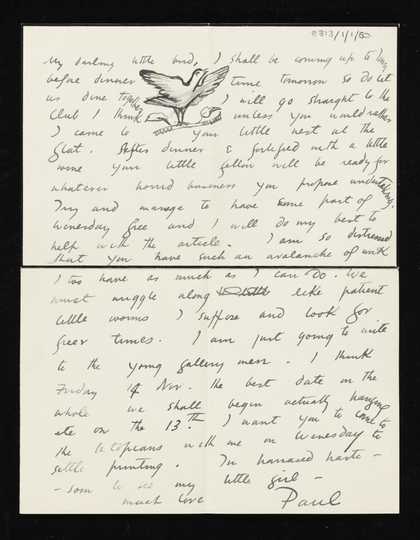 8313/1/1/50
My darling little bird, I shall be coming up to Town
before dinner time tomorrow so do let
us dine together I will go straight to the
Club I think unless you would rather
I came to your little nest at the
flat. After dinner & fortified with a little
wine your little fellow will be ready for
whatever horrid business you propose undertaking.
Try and manage to have some part of
Wenesday free and I will do my best to
help with the article. I am so distressed
that you have such an avalanche of work
I too have as much as I can do. We
must niggle along like patient
little worms I suppose and look for
freer times. I am just going to write
to the young gallery men. I think
Friday 14 Nov. the best date on the
whole we shall begin actually hanging
etc on the 13th. I want you to come to
the with me on Wenesday to
settle printing. In harassed haste -
- soon to see my little girl -
much love Paul